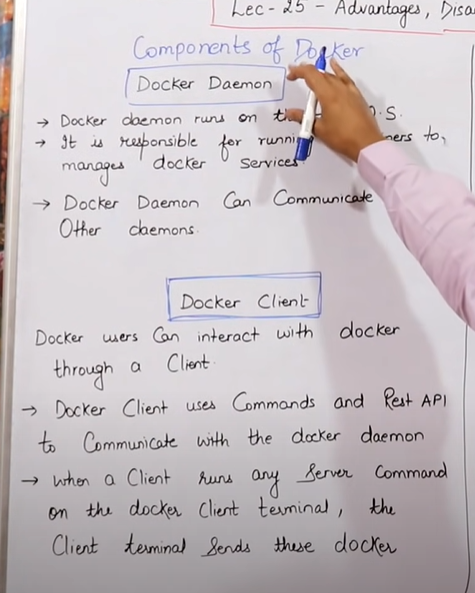 Lec - 25 - Advantages, Disa
Components of Docker
Docker Daemon
→ Docker daemon runs on the O.S.
→ It is responsible for running to,
manages docker Services
→ Docker Daemon Can Communicate
Other daemons.
Docker Client
Docker users Can interact with docker
through a Client.
→ Docker Client uses Commands and Rest API
to Communicate with the docker daemon
→ when a Client runs any Server Command
on the docker Client terminal, the
Client terminal Sends these docker